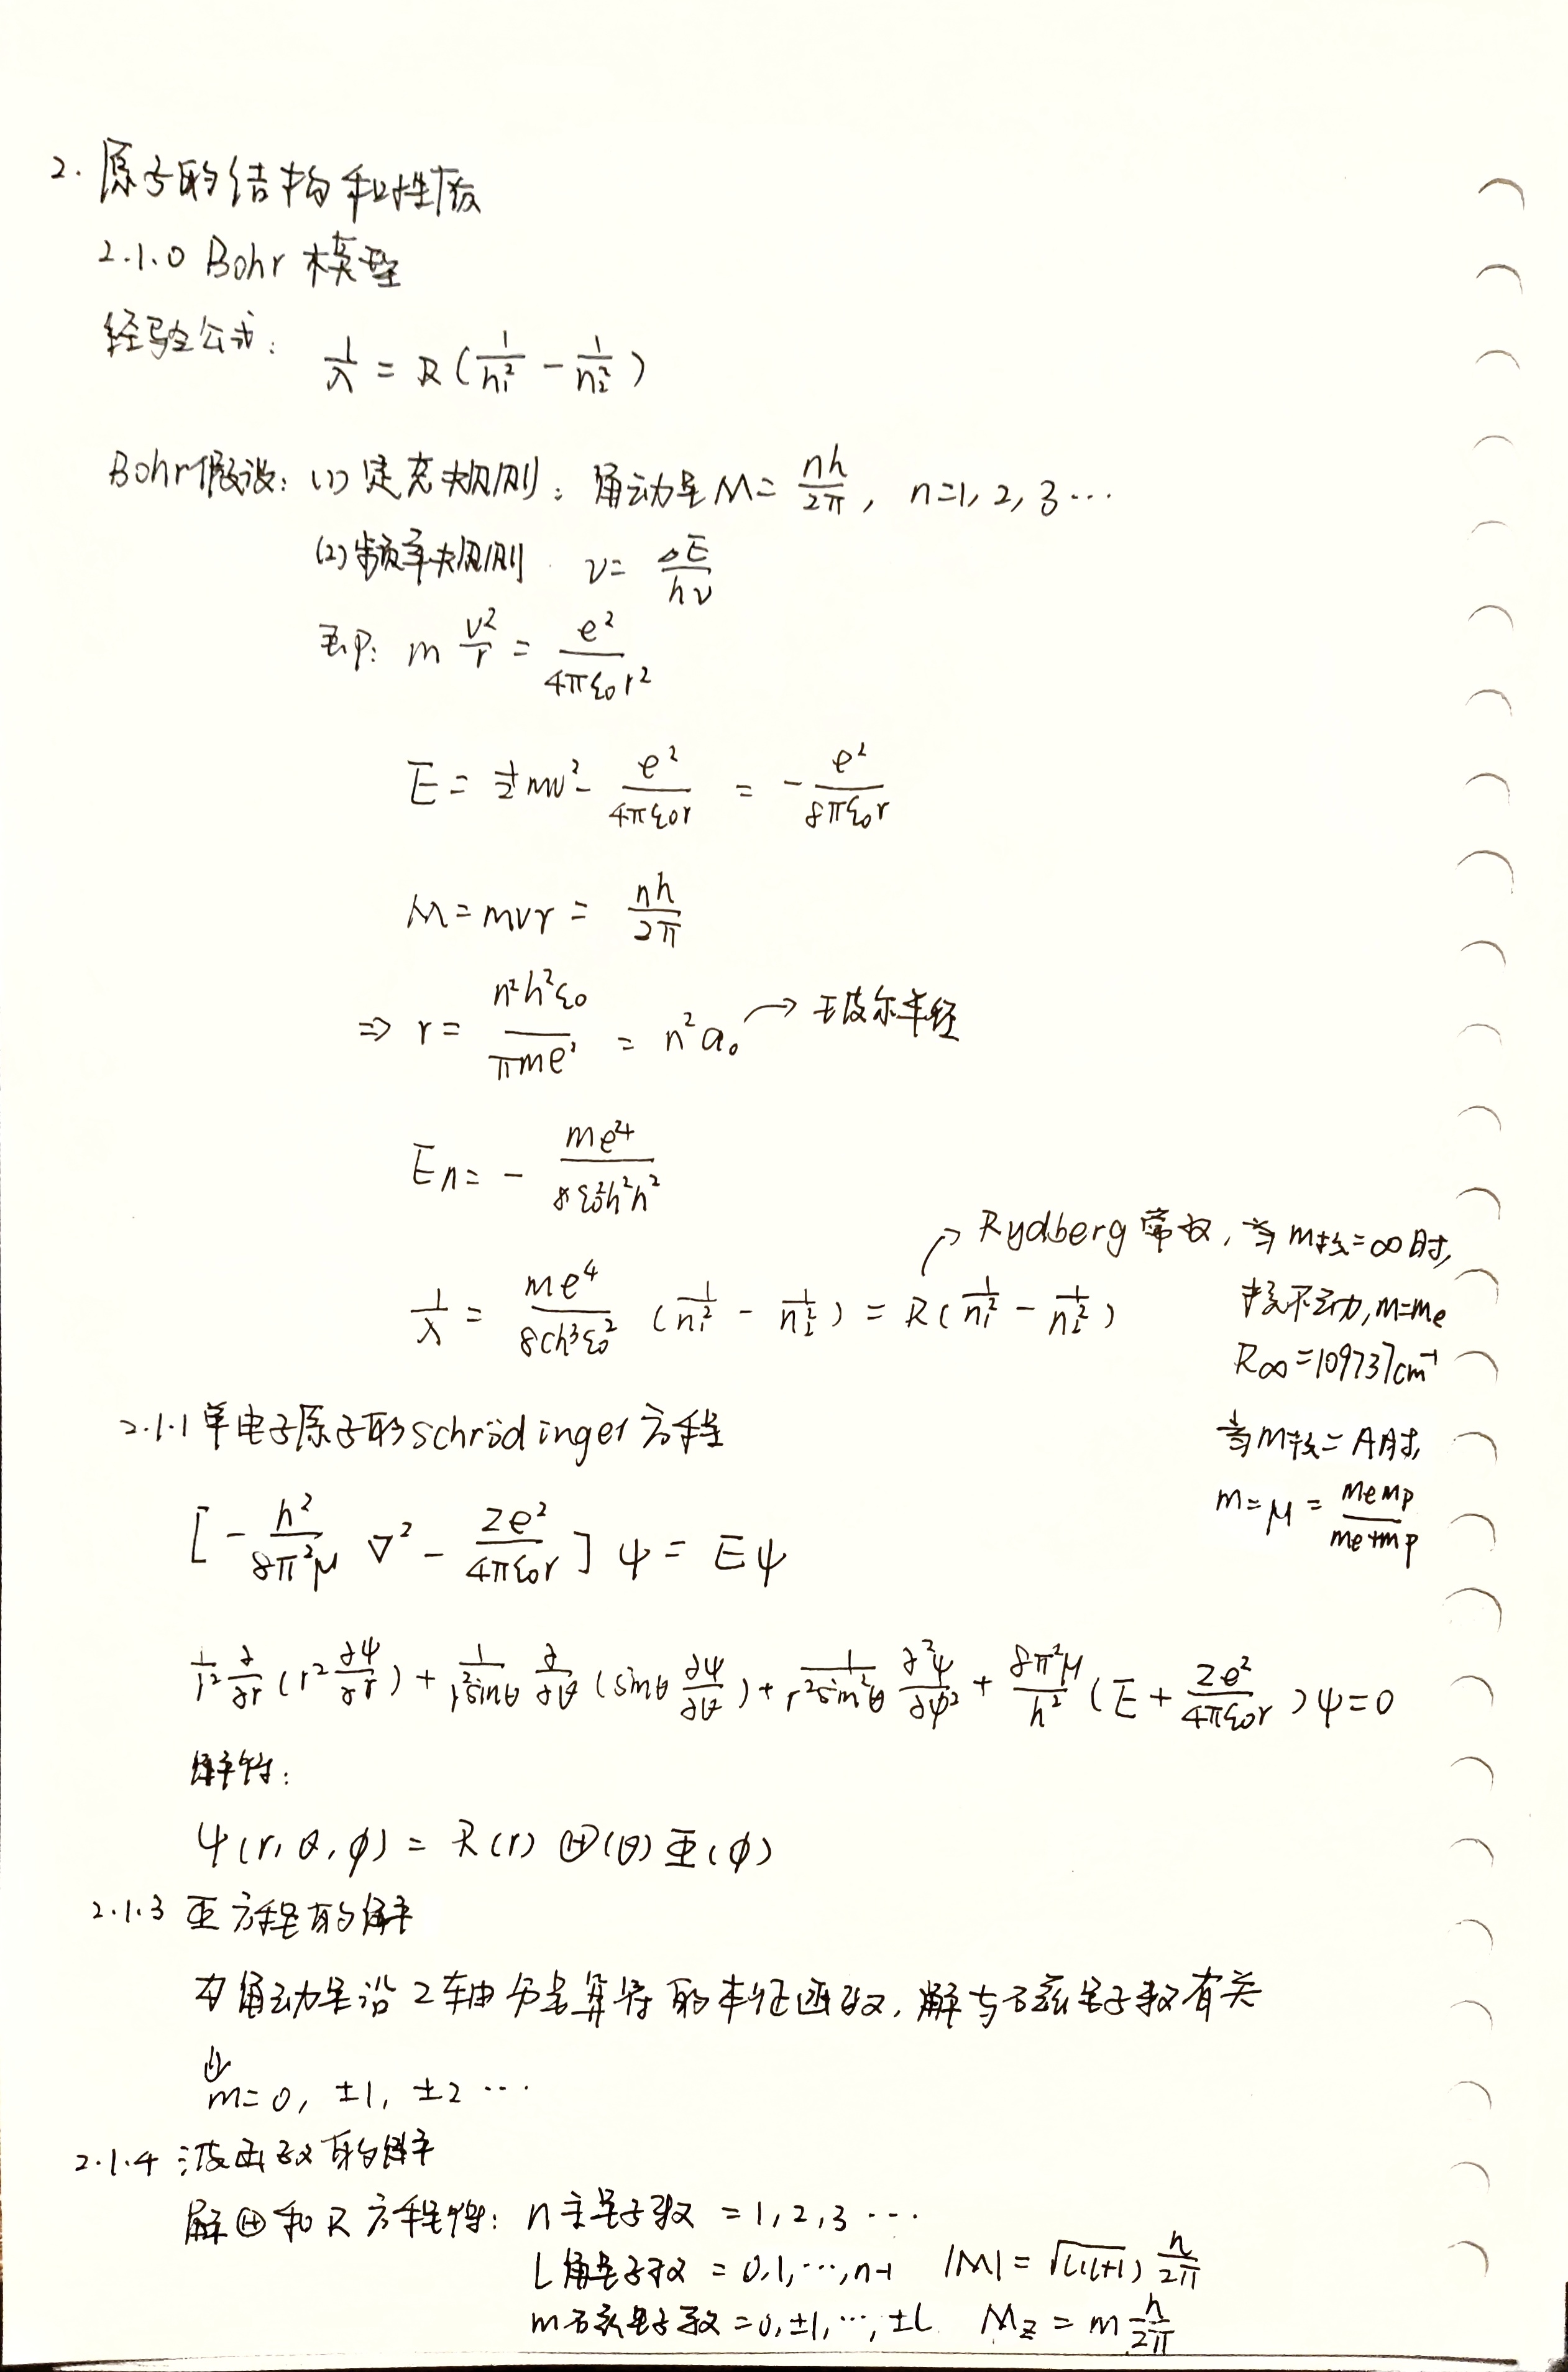 2. 原子的结构和性质
2.1.0 Bohr 模型
经验公式: 1/λ = R(1/n₁² − 1/n₂²)
Bohr假设: (1) 定态规则: 角动量M = nh/2π, n=1, 2, 3 ···
(2) 频率规则 ν = ΔE/hν
即: m v²/r = e²/4πε₀r²
E = ½mv² − e²/4πε₀r = − e²/8πε₀r
M = mvr = nh/2π
⇒ r = n²h²ε₀/πme² = n²a₀ → 玻尔半径
En = − me⁴/8ε₀²h²n²
1/λ = me⁴/8ch³ε₀² (1/n₁² − 1/n₂²) = R(1/n₁² − 1/n₂²)
→ Rydberg 常数, 当 m核=∞时,
核不动, m=me
R∞=109737cm⁻¹
当m核=A时,
m=μ = memp/me+mp
2.1.1 单电子原子的schrödinger方程
[− h²/8π²μ ∇² − Ze²/4πε₀r] ψ = Eψ
1/r² ∂/∂r (r² ∂ψ/∂r) + 1/r²sinθ ∂/∂θ (sinθ ∂ψ/∂θ) + 1/r²sin²θ ∂²ψ/∂φ² + 8π²μ/h² (E + Ze²/4πε₀r)ψ=0
解得:
ψ(r, θ, φ) = R(r) Θ(θ) Φ(φ)
2.1.3 Φ方程的解
为角动量沿Z轴分量算符的本征函数, 解与磁量子数有关
⇓
m=0, ±1, ±2 ···
2.1.4 波函数的解
解Θ和R方程得: n主量子数 = 1, 2, 3 ···
l 角量子数 = 0,1,···,n-1 |M| = √l(l+1) h/2π
m磁量子数 = 0, ±1, ···, ±l Mz = m h/2π